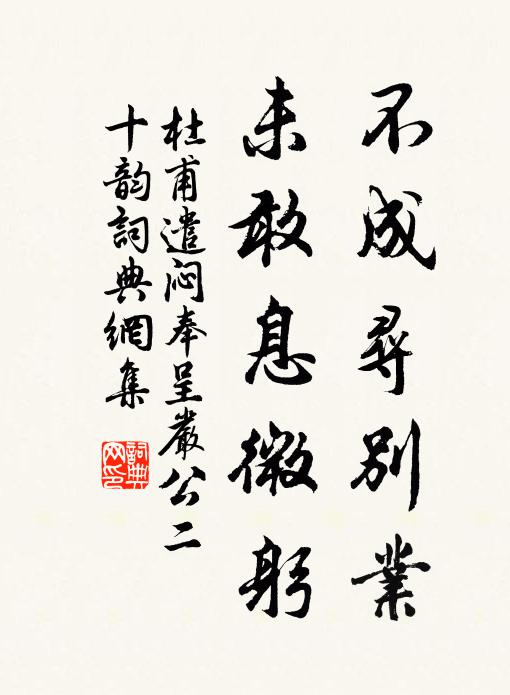 不成尋別業
未敢息微躬
杜甫遣闷奉呈嚴公二
十韵詞典網集
詞典
网印